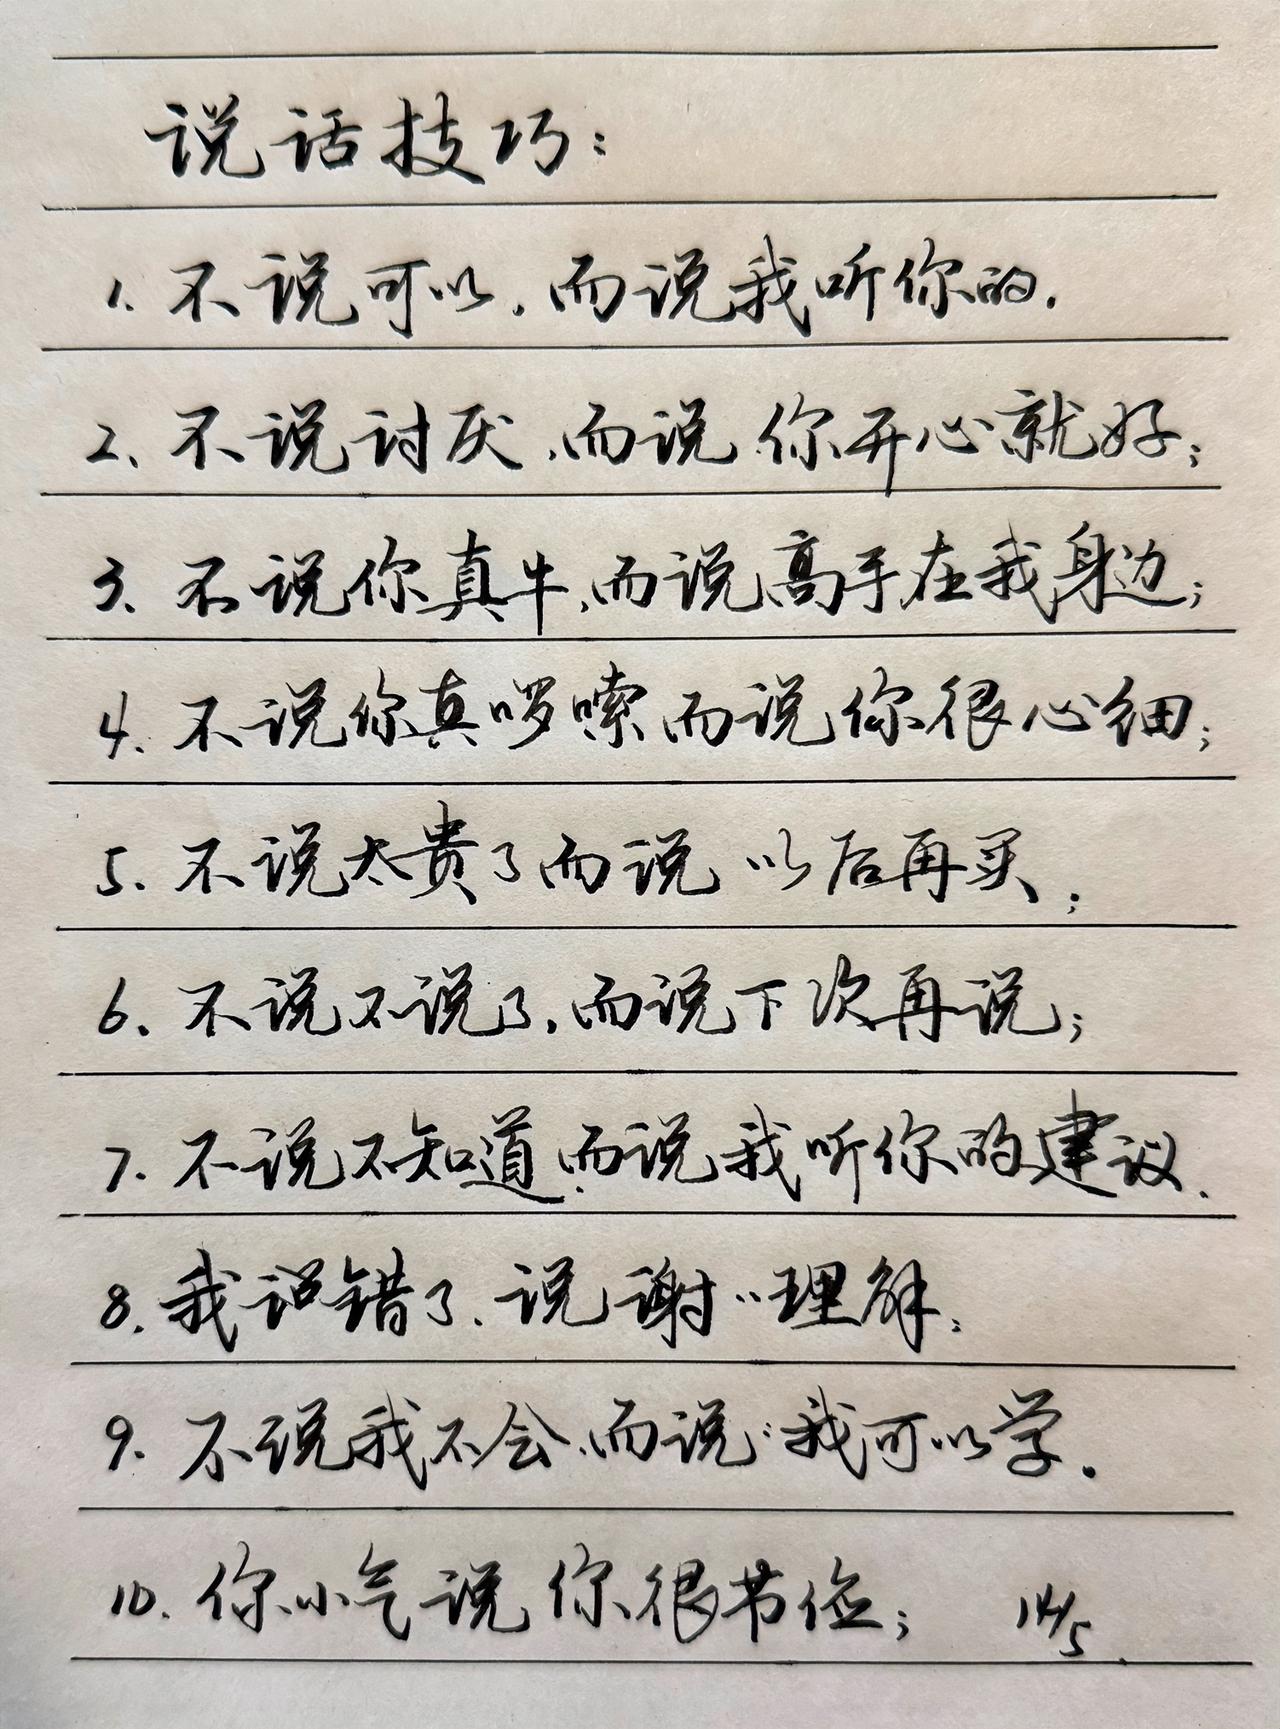 说话技巧：
1. 不说可以，而说我听你的.
2、不说讨厌，而说你开心就好；
3、不说你真牛，而说高手在我身边；
4. 不说你真啰嗦而说你很心细；
5. 不说太贵了而说以后再买；
6. 不说不说了，而说下次再说；
7. 不说不知道，而说我听你的建议.
8. 我说错了、说谢〃理解；
9. 不说我不会、而说：我可以学.
10. 你小气说你很节俭； 14/5